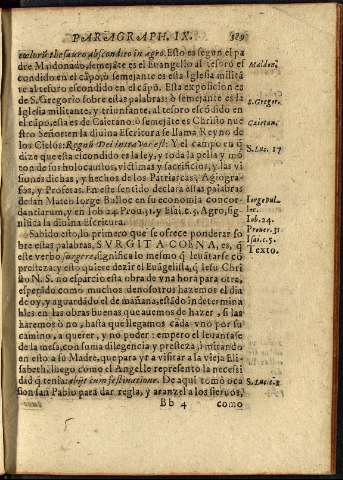 PARAGRAPH. IX. 389
cælorũ thesauro abscondito in agro. Esto es segun el pa
dre Maldonado, semejãte es el Euangelio al tesoro es
condido en el cãpo, ò semejante es esta Iglesia militã
te al tesoro escondido en el cãpo. Esta exposicion es
de S. Gregorio sobre estas palabras: ò semejante es la
Iglesia militante, y triunfante, al tesoro escondido en
el cãpo, esta es de Caietano: ò semejãte es Christo nue
stro Señor: en la diuina Escritura se llama Reyno de
los Cielos: Regnũ Dei intra vos est: Y el campo en q̃
dize que esta escondido es la ley, y toda la pelia y mõ
ton de sus holocaustos, victimas y sacrificios, y las vi
siones dichas, y hechos de los Patriarcas, Agiogra-
fos, y Profetas. En este sentido declara estas palabras
de san Mateo Iorge Bulloc en su economia concor-
dantiarum, y en Iob 24. Prou. 31. y Esai. c. 5. Agro, sig-
nifica la diuina Escritura.
Sabido esto, lo primero que se ofrece ponderar so
bre estas palabras, SVRGIT A COENA, es, q̃
este verbo surgere, significa lo mesmo q̃ leuãtarse cõ
presteza; y esto quiere dezir el Euãgelista, q̃ Iesu Chri
sto N. S. no esparcio esta obra de vna hora para otre,
el perido como muchos de nosotros hazemos el dia
de oy, y aguardãdo el de mañana, estãdo indetermina
bles en las obras buenas que auemos de hazer, si las
haremos ò no, hasta que llegamos cada vno por su
camino, a querer, y no poder: empero el leuantase
de la mesa, con suma diligencia y presteza, imitando
en esto a su Madre, que para yr a visitar a la vieja Eli-
sabeth, luego como el Angel le represento la necesi
dad q̃ tenia: abijt cum festinatione. De aqui tomò oca
sion san Pablo para dar regla, y aranzel a los sieruos,
Bb 4 como
Maldon.
S. Gregor.
Caietan.
S. Luc. 17
Iorge Bul-
loc.
Iob. 24.
Prouer. 31
Isai. c. 5.
Texto.
S. Luc. c. 1.